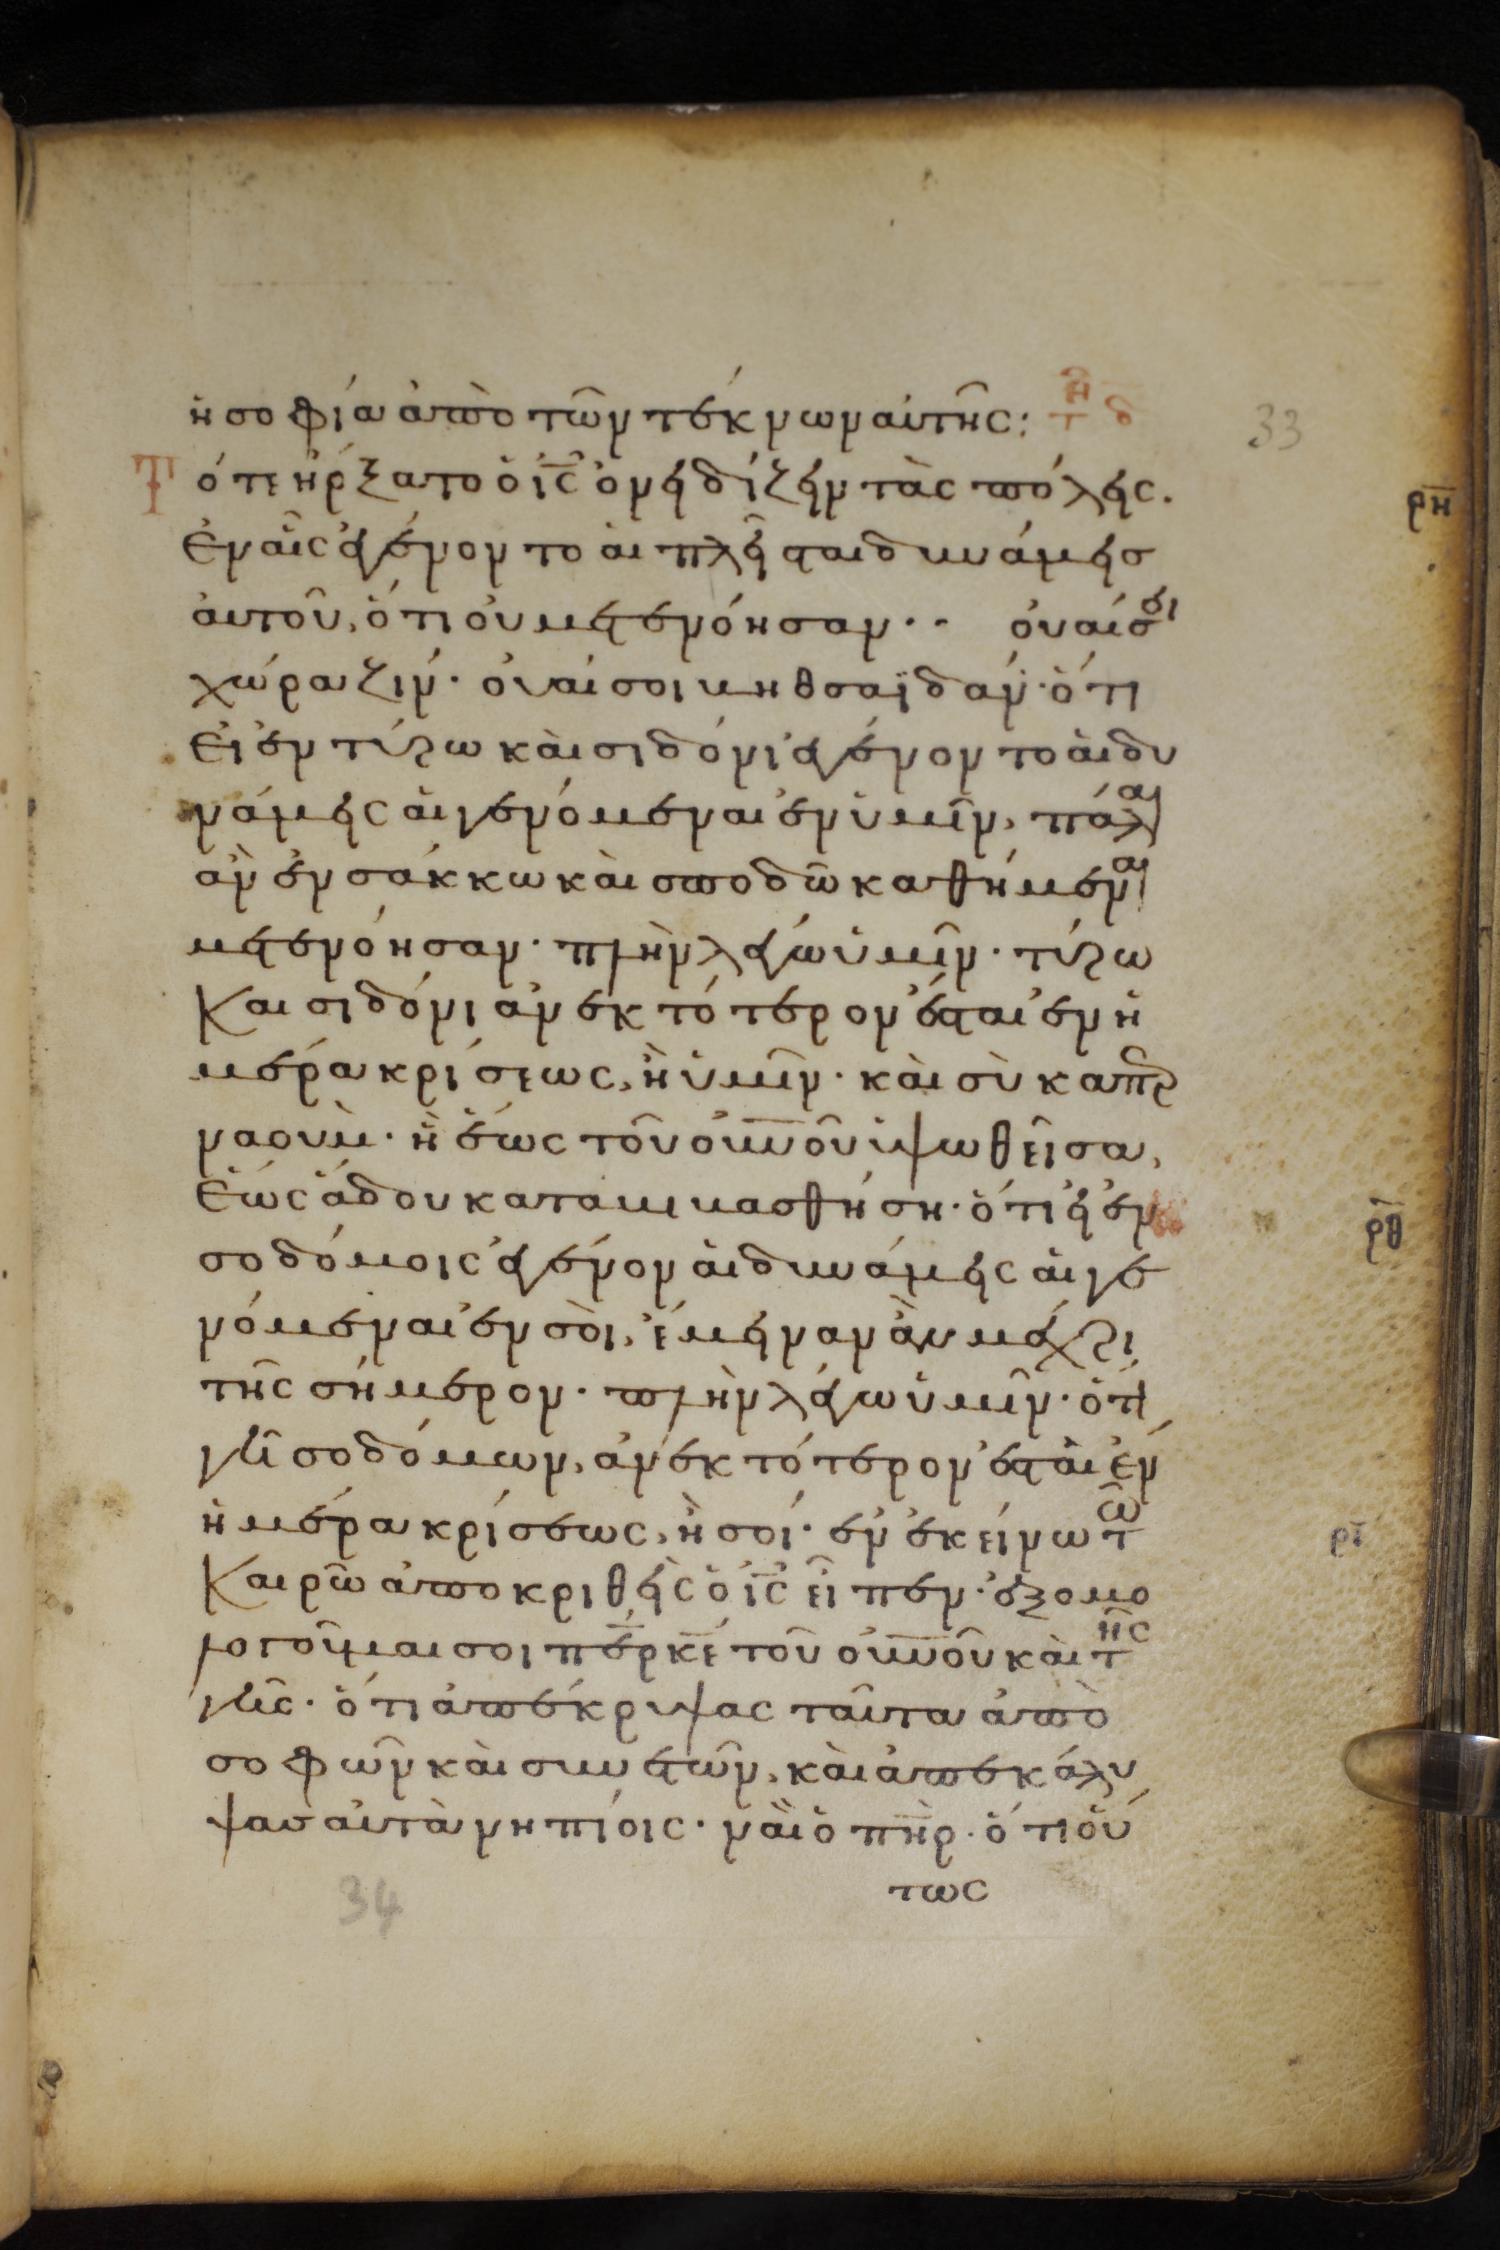 ἡ σοφία ἀπὸ τῶν τέκνων αὐτῆς: τῆ δ̅
33
Τότε ἤρξατο ὁ ι̅ς̅ ὀνειδίζειν τὰς πόλεις.
ρ̅η̅
ἐν αἷς ἐγένοντο αἱ πλεῖσται δυνάμεις
αὐτοῦ, ὅτι οὐ μετενόησαν·· οὐαί σοι
χώραζίν· οὐαί σοι βηθσαϊδάν· ὅτι
εἰ ἐν τύρω καὶ σιδόνι ἐγένοντο αἱ δυ
νάμεις αἱ γενόμεναι ἐν ὑμῖν, πάλαι
ἂν ἐν σάκκω καὶ σποδῶ καθήμεναι
μετενόησαν· πλὴν λέγω ὑμῖν· τύρω
καὶ σιδόνι ἀνεκτότερον ἔσται ἐν ἡ
μέρα κρίσεως, ἢ ὑμῖν· καὶ σὺ καπερ
ναοὺμ· ἡ ἕως τοῦ ο̅υ̅ν̅οῦ ὑψωθεῖσα,
ἕως ἅδου καταβιβασθήση· ὅτι εἰ ἐν
ρ̅θ̅
σοδόμοις ἐγένον αἱ δυνάμεις αἱ γε
νόμεναι ἐν σοὶ, ἔμειναν ἂν μέχρι
τῆς σήμερον· πλὴν λέγω ὑμῖν· ὅτι
γῆ σοδόμων, ἀνεκτότερον ἔσται ἐν
ἡμέρα κρίσεως, ἢ σοί· ἐν ἐκείνω τῶ
ρ̅ι̅
καιρῶ ἀποκριθεὶς ὁ ι̅ς̅ εἶπεν· ἐξομο
λογοῦμαι σοι π̅ε̅ρ κ̅ε̅ τοῦ ο̅υ̅ν̅οῦ καὶ τῆς
γῆς· ὅτι ἀπέκρυψας ταῦτα ἀπὸ
σοφῶν καὶ συνετῶν, καὶ ἀπεκάλυ
ψασ αὐτὰ νηπίοις· ναὶ ὁ π̅η̅ρ· ὅτι οὕ
τως
34